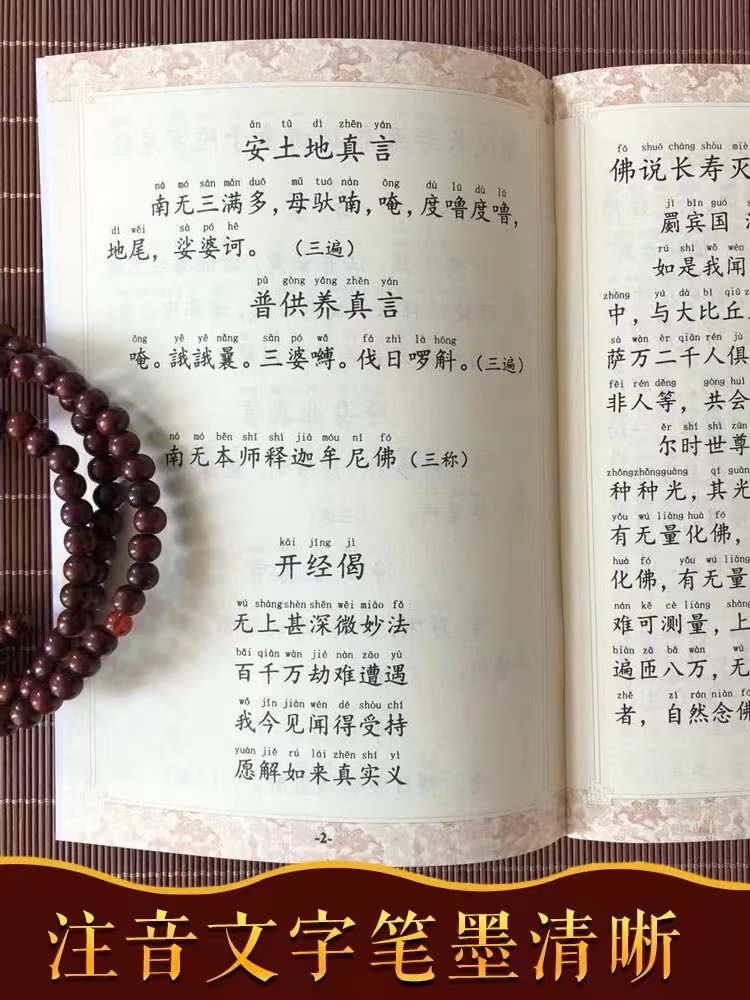 ān tǔ dì zhēn yán
安土地真言
ná mó sān mǎn duō mǔ tuó nán ōng dù lū dù lū
南无三满多，母驮喃，唵，度噜度噜，
dì wěi sà pó hē
地尾，娑婆诃。（三遍）
pǔ gòng yǎng zhēn yán
普供养真言
ōng yě yě nǎng sān pó wā fá zhì là hōng
唵。誐誐曩。三婆嚩。伐日啰斛。（三遍）
ná mó běn shī shì jiā móu ní fó
南无本师释迦牟尼佛（三称）
kāi jīng jì
开经偈
wú shàng shèn shēn wēi miào fǎ
无上甚深微妙法
bǎi qiān wàn jié nán zāo yù
百千万劫难遭遇
wǒ jīn jiàn wén dé shòu chí
我今见闻得受持
yuàn jiě rú lái zhēn shí yì
愿解如来真实义
-2-
fó shuō cháng shòu miè
佛说长寿灭
jì bīn guó
罽宾国
rú shì wǒ wén
如是我闻
zhōng yú dà bǐ qiū
中，与大比丘
sà wàn èr qiān rén jù
萨万二千人俱
fēi rén děng gòng huì
非人等，共会
ěr shí shì zūn
尔时世尊
zhǒng zhǒng guāng qí guāng
种种光，其光
yǒu wú liàng huà fó
有无量化佛，
huà fó yǒu wú liàng
化佛，有无量
nán kě cè liáng shàng
难可测量，上
biàn zā bā wàn wú
遍匝八万，无
zhě zì rán niàn fó
者，自然念佛
注音文字笔墨清晰